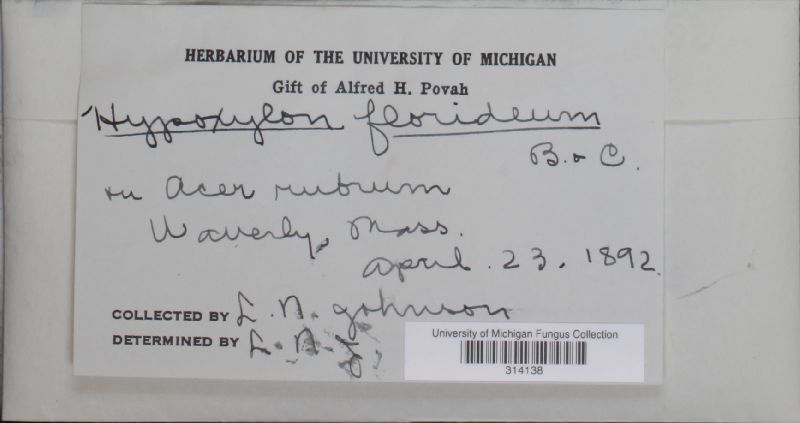 HERBARIUM OF THE UNIVERSITY OF MICHIGAN
Gift of Alfred H. Povah
Hypoxylon florideum
B. & C.
on Acer rubrum
Waverly, Mass.
April 23, 1892.
COLLECTED BY L. N. Johnson
DETERMINED BY L. N. J.
University of Michigan Fungus Collection
314138